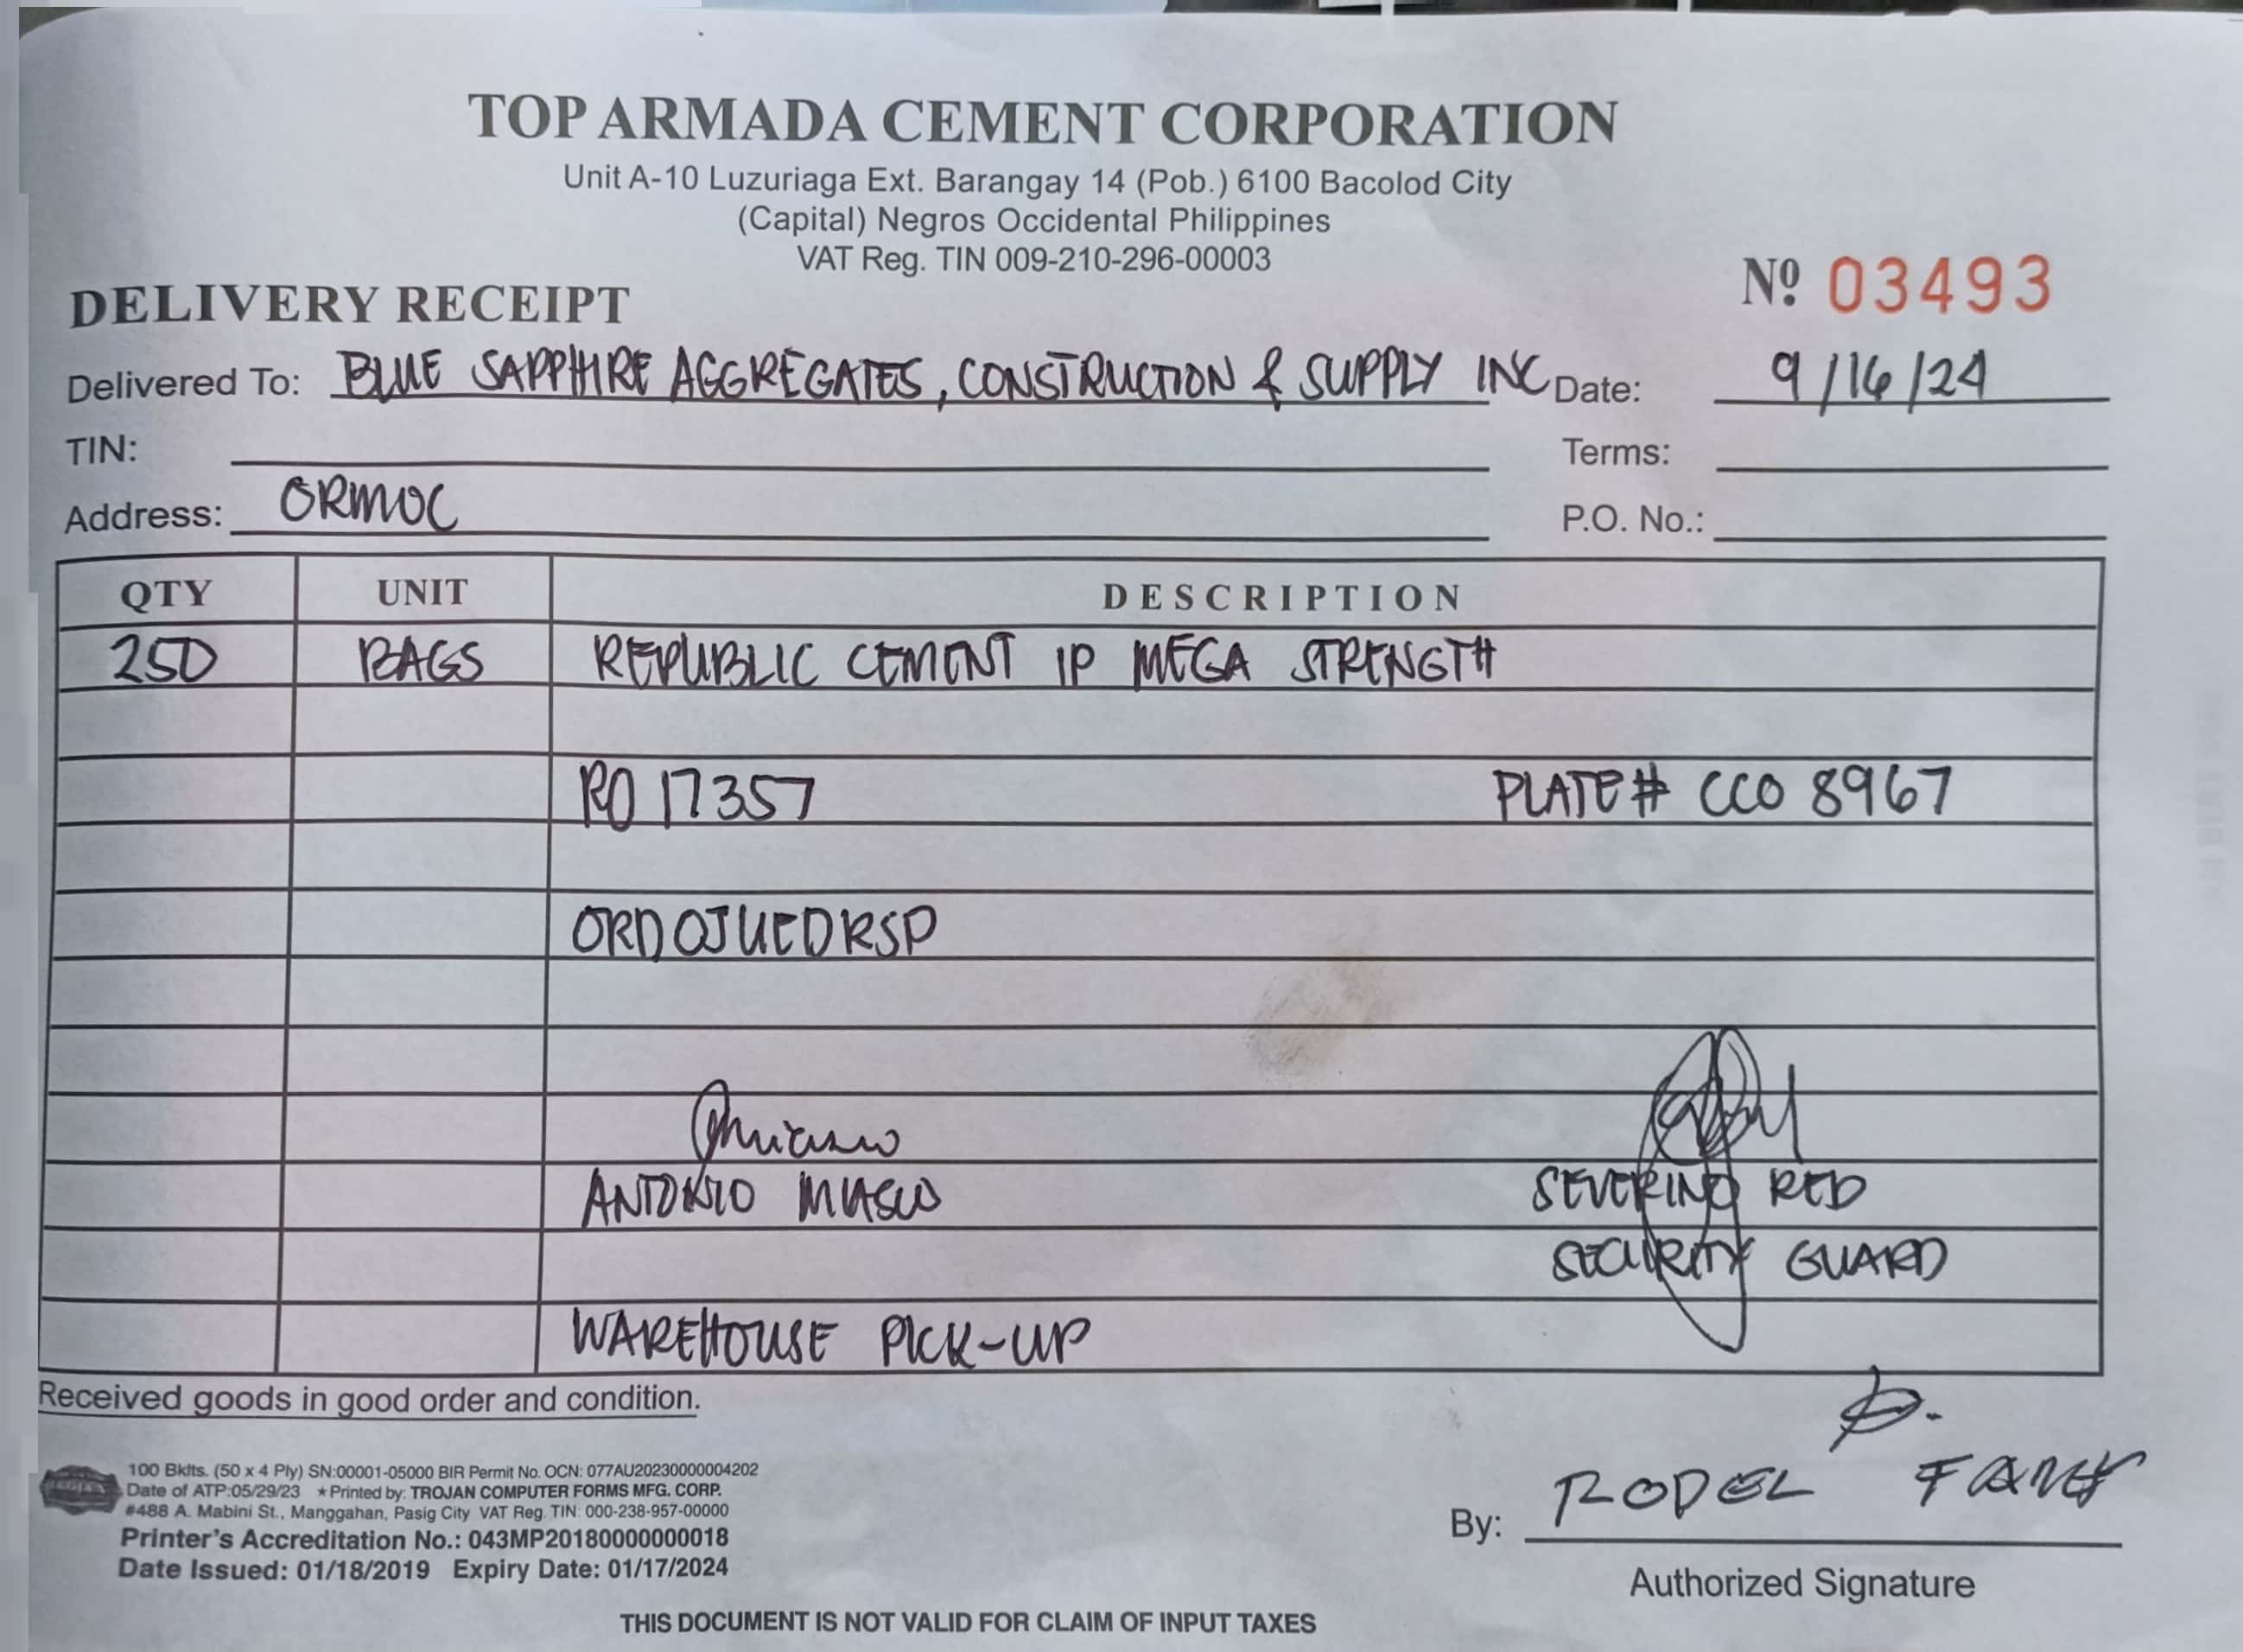 TOP ARMADA CEMENT CORPORATION
Unit A-10 Luzuriaga Ext. Barangay 14 (Pob.) 6100 Bacolod City
(Capital) Negros Occidental Philippines
VAT Reg. TIN 009-210-296-00003
Nº 03493
DELIVERY RECEIPT
Delivered To: BLUE SAPPHIRE AGGREGATES, CONSTRUCTION & SUPPLY INC Date: 9/16/24
TIN: Terms:
Address: ORMOC P.O. No.:
QTY UNIT DESCRIPTION
250 BAGS REPUBLIC CEMENT IP MEGA STRENGTH
RO 17357 PLATE# CCO 8967
ORDOJUEDRSP
ANTONIO SEVERINO RED
SECURITY GUARD
WAREHOUSE PICK-UP
Received goods in good order and condition.
100 Bklts. (50 x 4 Ply) SN:00001-05000 BIR Permit No. OCN: 077AU20230000004202
Date of ATP:05/29/23 ★Printed by: TROJAN COMPUTER FORMS MFG. CORP.
#488 A. Mabini St., Manggahan, Pasig City VAT Reg. TIN: 000-238-957-00000
Printer's Accreditation No.: 043MP20180000000018
Date Issued: 01/18/2019 Expiry Date: 01/17/2024
By: RODEL
Authorized Signature
THIS DOCUMENT IS NOT VALID FOR CLAIM OF INPUT TAXES